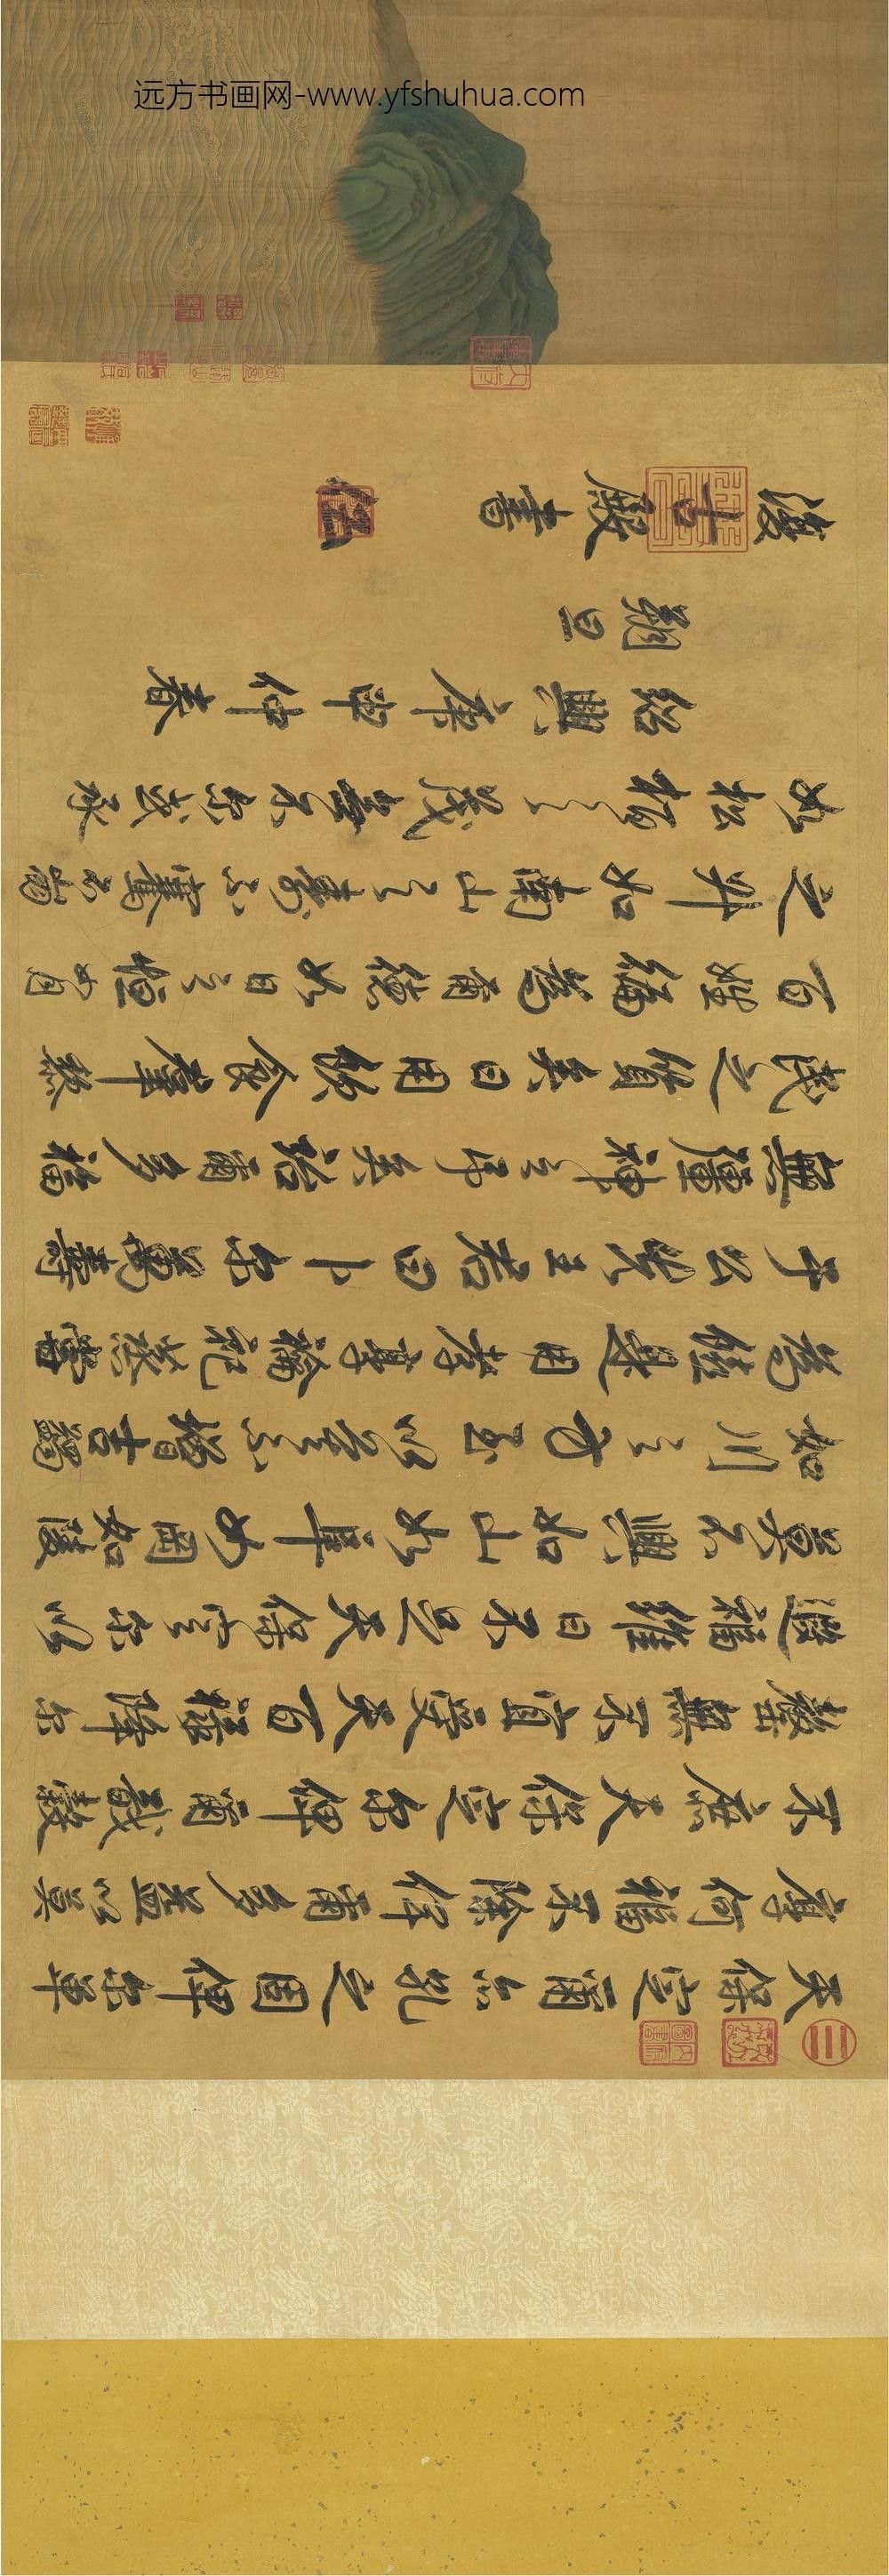 远方书画网-www.yfshuhua.com
天保定爾亦孔之固俾尔單
厚何福不除俾爾多益以莫
不庶天保定尔俾爾戩穀
罄無不宜受天百祿降尔
遐福維日不足天保定尔以
莫不興如山如阜如岡如陵
如川之方至以莫不增吉蠲
為饎是用孝享禴祠烝嘗
于公先王君曰卜尔萬壽
無疆神之弔矣詒爾多福
民之質矣日用飲食羣黎
百姓徧為爾德如日之恒如月
之升如南山之壽不騫不崩
如松柏之茂無不尔或承
紹興庚申仲春
朔旦
復古殿書